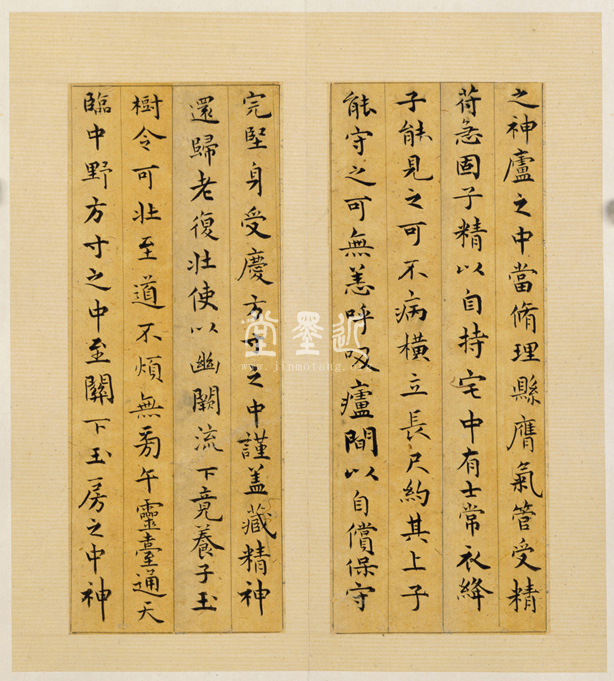 之神廬之中當脩理縣膺氣管受精
苻急固子精以自持宅中有士常衣絳
子能見之可不病橫立長尺約其上子
能守之可無恙呼吸廬間以自償保守
完堅身受慶方寸之中謹蓋藏精神
還歸老復壯使以幽闕流下竟養子玉
樹令可壯至道不煩無旁午靈臺通天
臨中野方寸之中至關下玉房之中神
近墨堂
www.jinmotang.